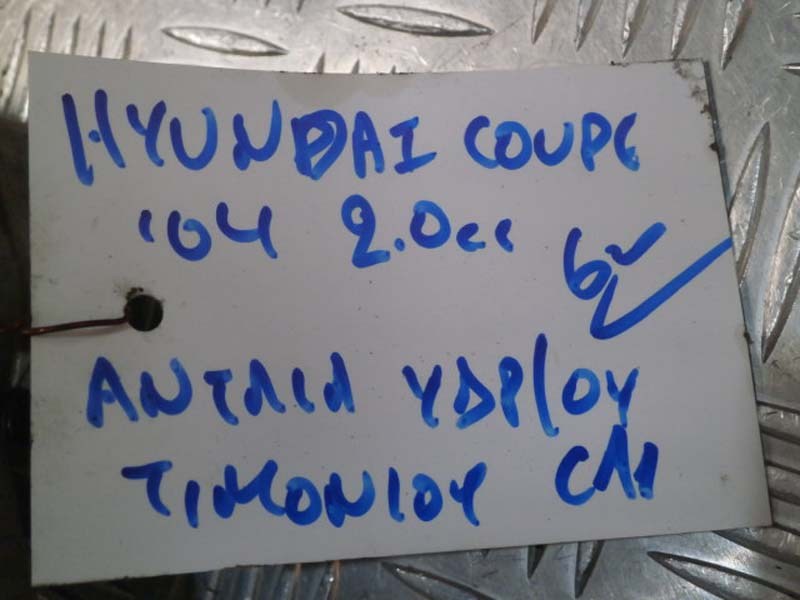 HYUNDAI COUPE
'04 2.0cc
ΑΝΤΛΙΑ ΥΔΡ/ΟΥ
ΤΙΜΟΝΙΟΥ